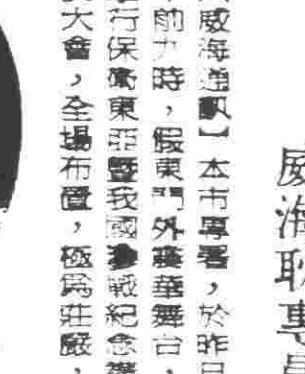 威海耿專員
威海通訊】本市專署，於昨日
前九時，假東門外華舞台，
行保衛東亞暨我國參戰紀念
大會，全場布置，極爲莊嚴，